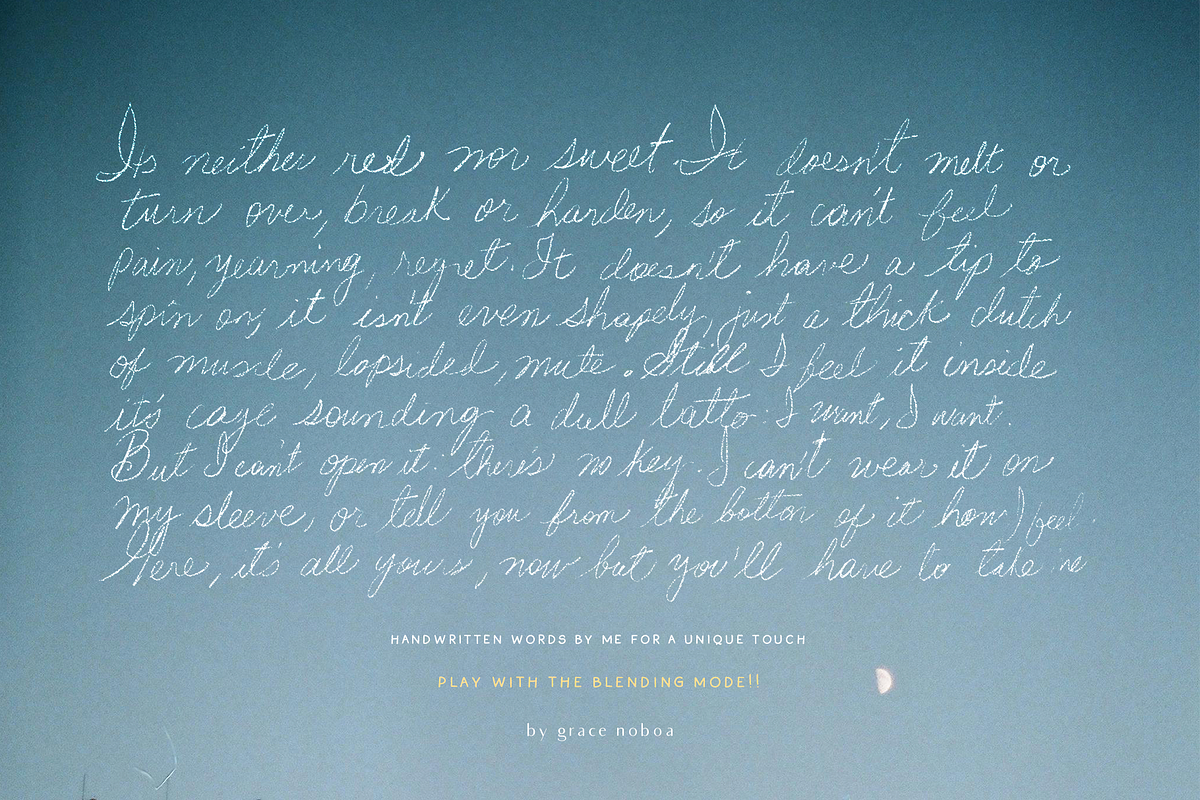 Its neither red nor sweet. It doesn't melt or
turn over, break or harden, so it can't feel
pain, yearning, regret. It doesn't have a tip to
spin on, it isn't even shapely, just a thick clutch
of muscle, lopsided, mute. Still I feel it inside
it's cage sounding a dull tatto: I want, I want.
But I can't open it: there's no key. I can't wear it on
my sleeve, or tell you from the bottom of it how I feel.
Here, it's all yours, now but you'll have to take me
HANDWRITTEN WORDS BY ME FOR A UNIQUE TOUCH
PLAY WITH THE BLENDING MODE!!
by grace noboa